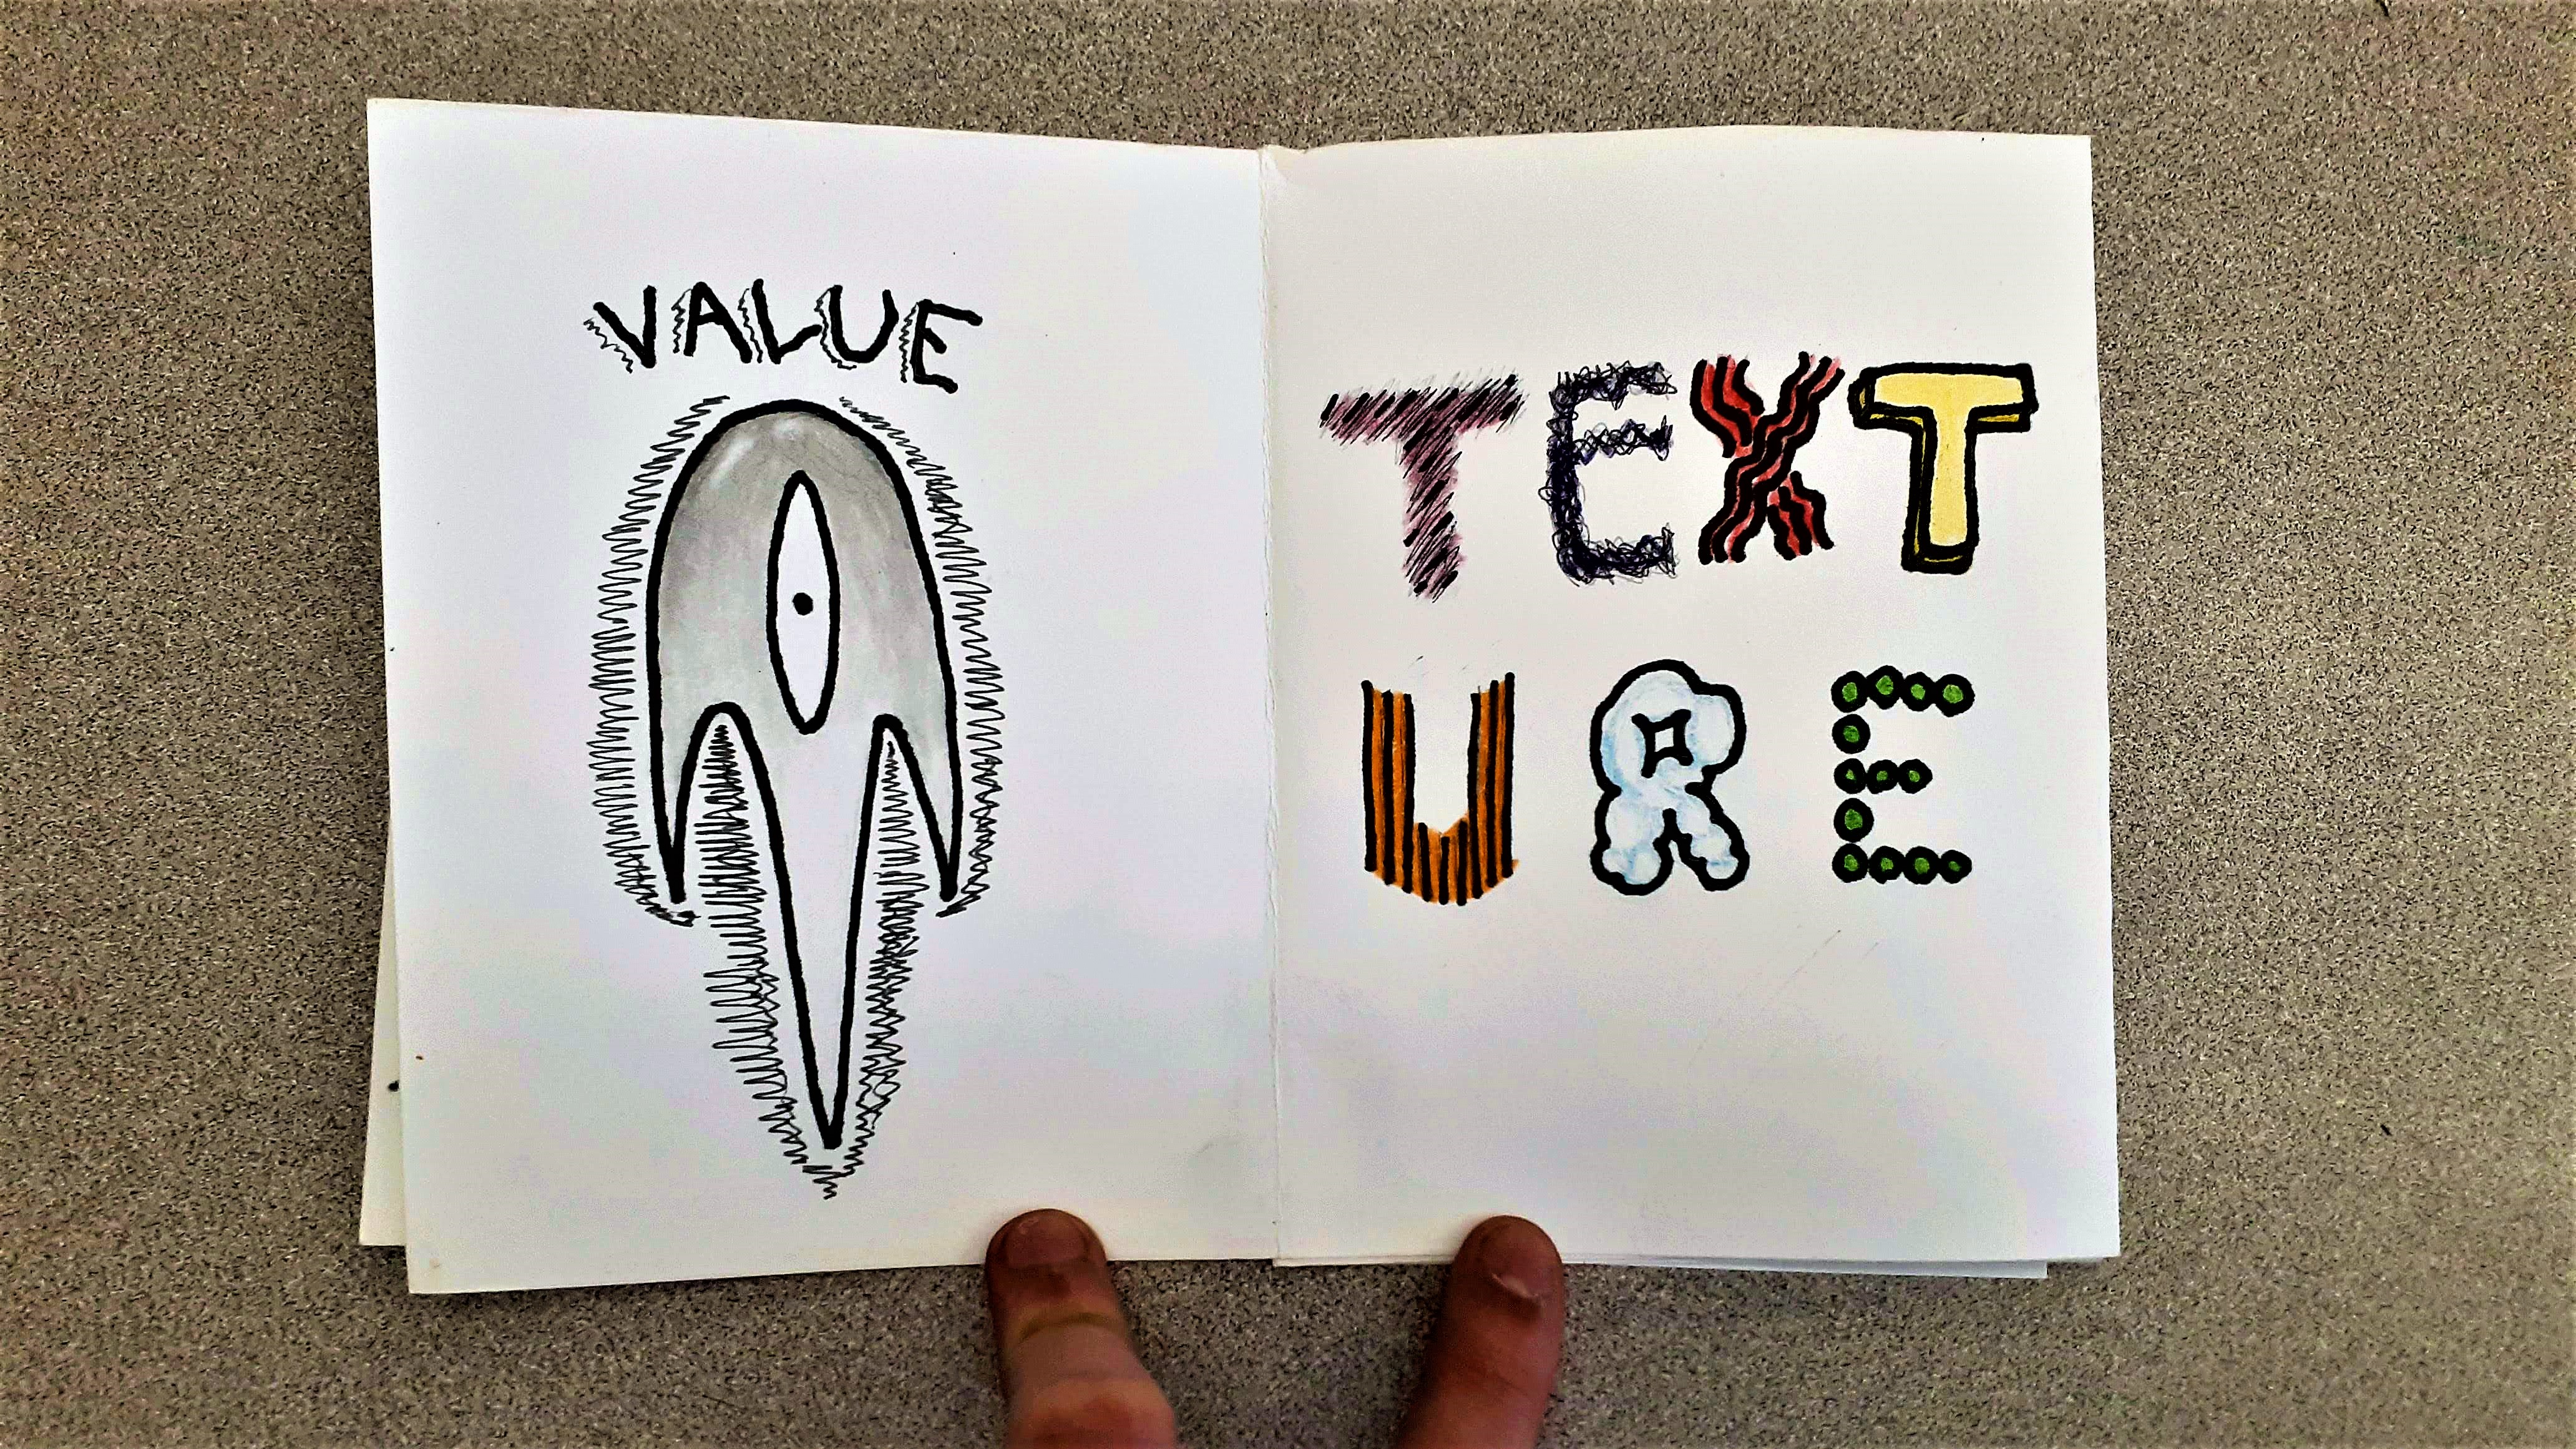 VALUE
TEXT
URE